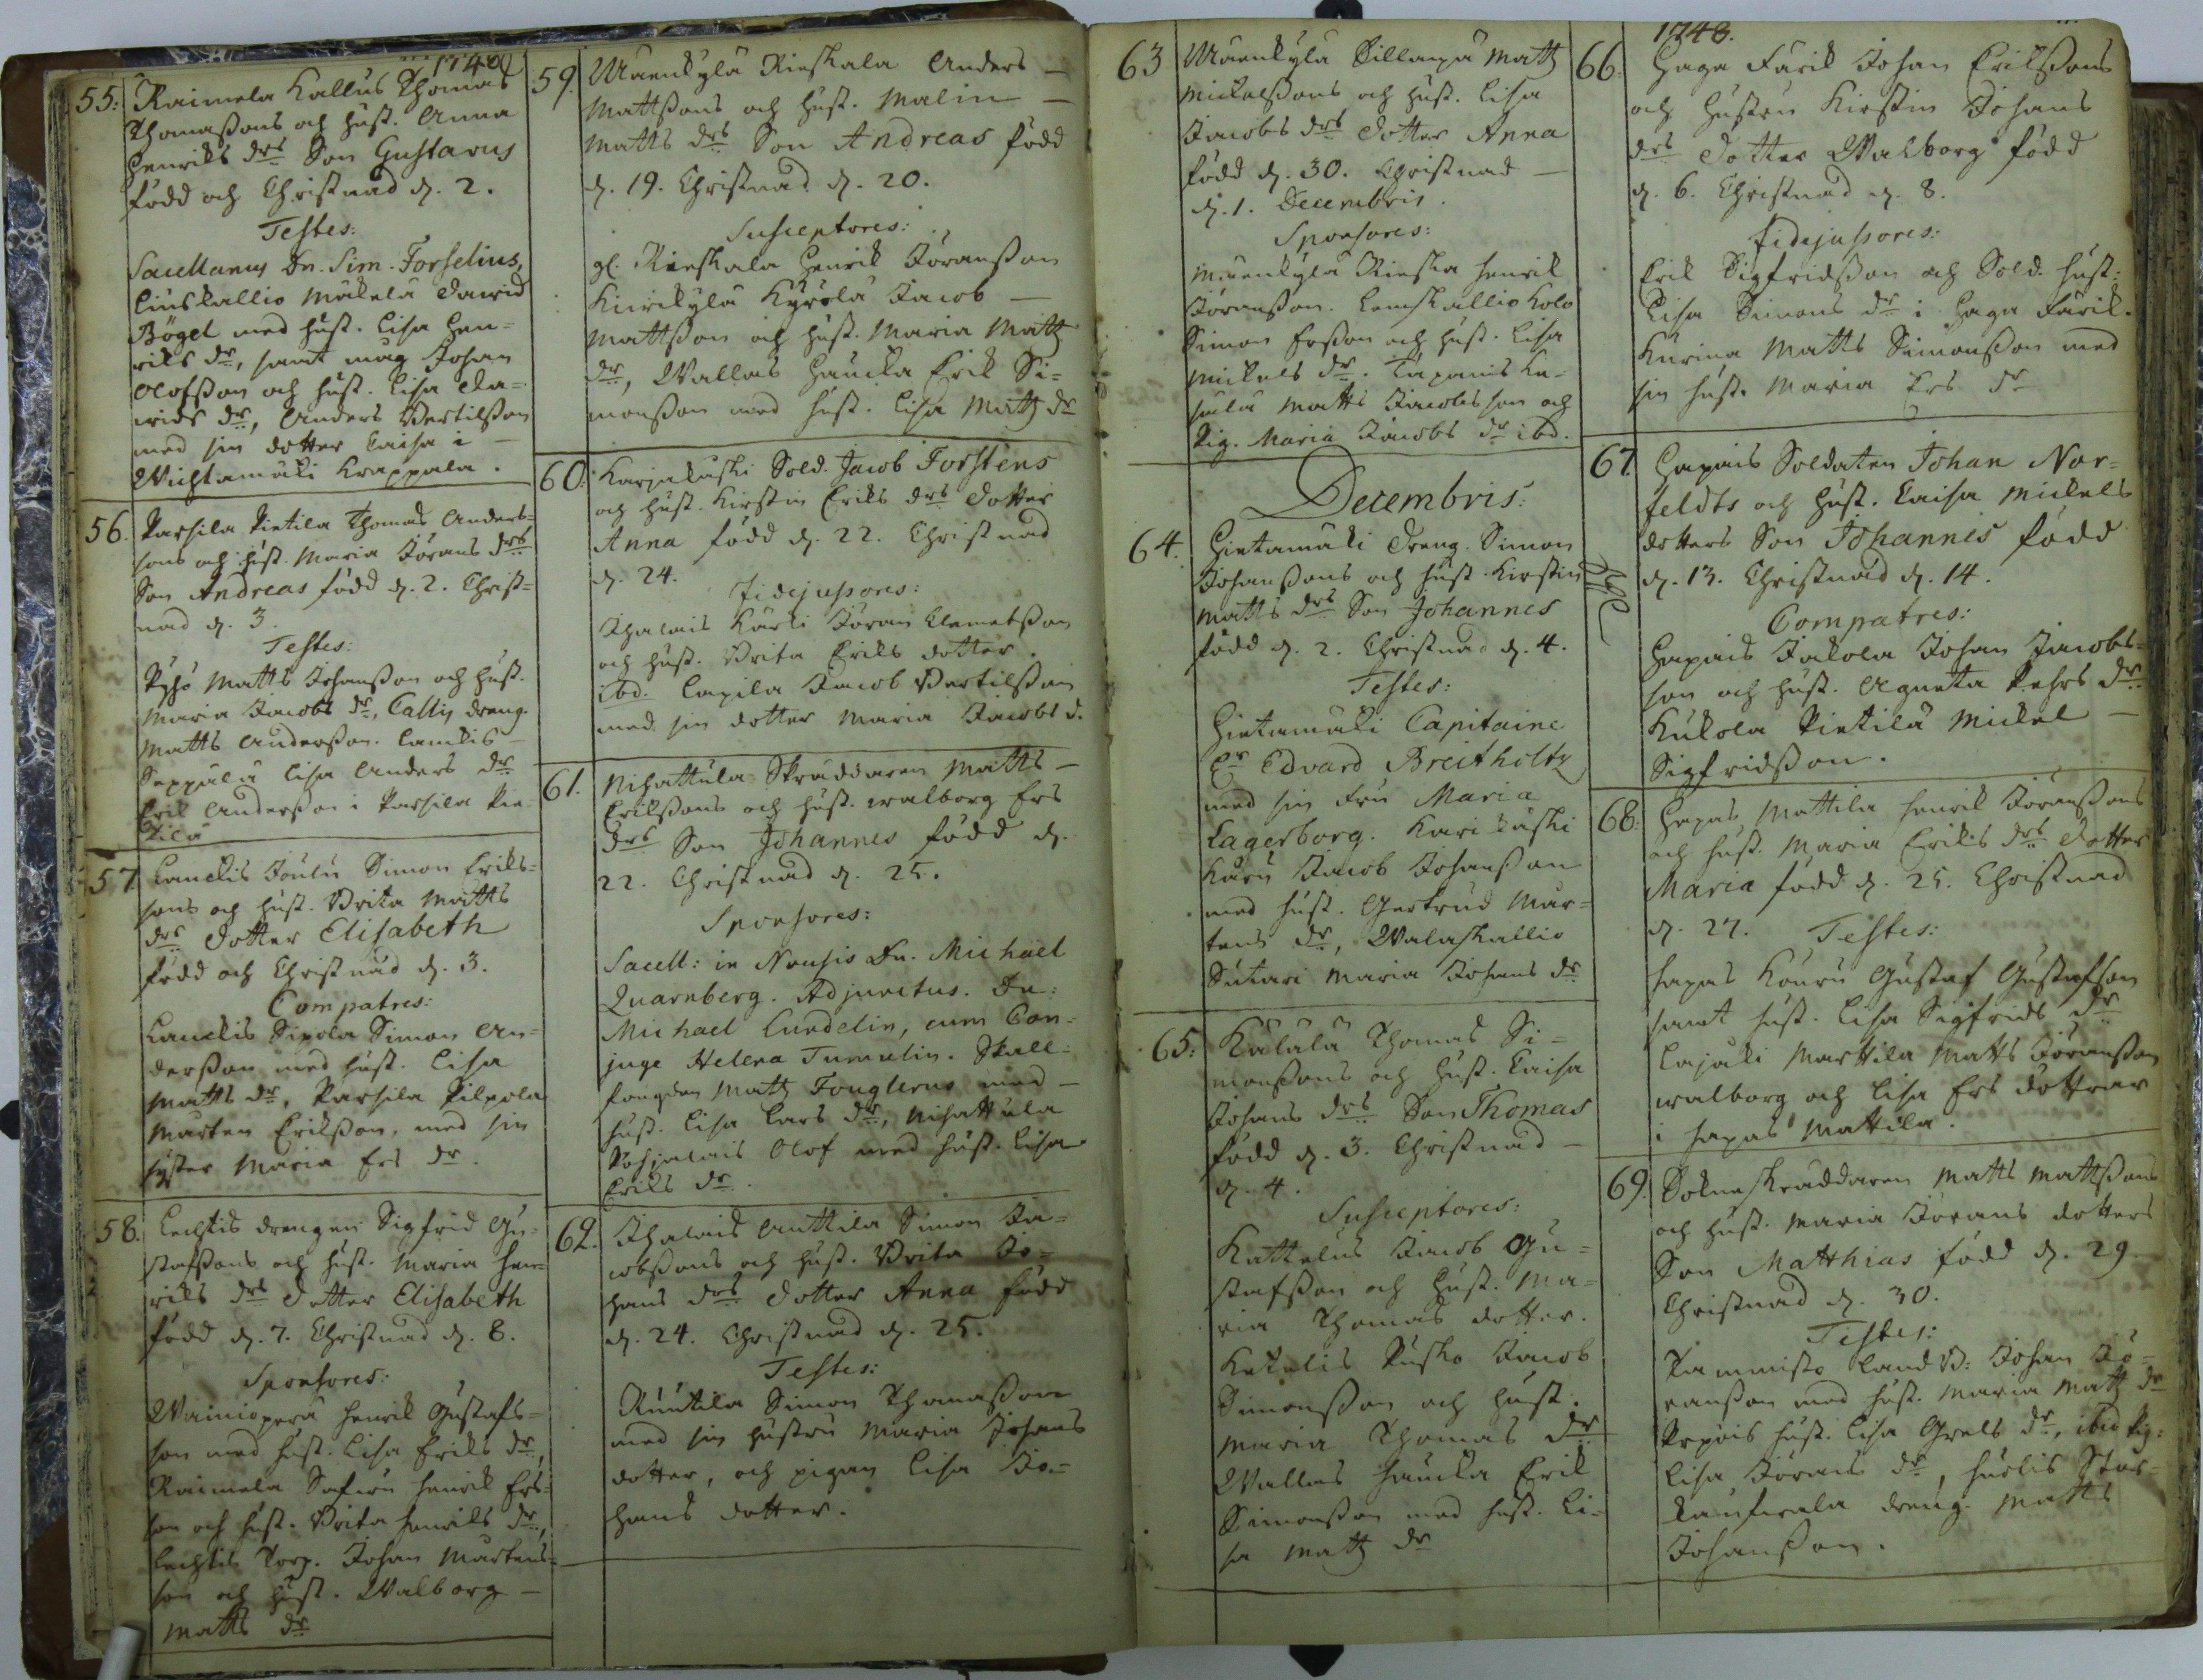 1748
55. Raimela Kallus Thomas
Thomaßons och hust. Anna
Henriks drs Son Gustavus
född och Christnad d. 2.
Testes:
Sacellanus Dn. Sim. Forselius,
Liuskallio Mäkelä David
Bögel med hust. Lisa Hen=
riks dr, samt måg Johan
Olofsson och hust. Lisa Da=
vids dr, Anders Bertilsson
med sin dotter Caisa i
Wichtamäki Krappala.
56. Parsila Pietila Thomas Anders=
sons och hust. Maria Jörans drs
Son Andreas född d. 2. Christ=
nad d. 3.
Testes:
Pyhö Matts Johanßon och hust.
Maria Jacobs dr, Callis dreng.
Matts Andersson. Lauckis
Seppälä Lisa Anders dr
Erik Andersson i Parsila Pie
tilä
57. Lauckis Joulu Simon Eriks=
sons och hust. Brita Matts
drs dotter Elisabeth
född och Christnad d. 3.
Compatres:
Lauckis Sipola Simon An=
dersson med hust. Lisa
Matts dr, Parsila Pilpola
Mårten Eriksson, med sin
syster Maria Ers dr.
58. Lechtis drengen Sigfrid Gu=
stafsons och hust. Maria Hen=
riks drs dotter Elisabeth
född d. 7. Christnad d. 8.
Sponsores:
Wainiopera Henrik Gustafs=
son med hust. Lisa Eriks dr,
Raimela Safuru Henrik Ers=
son och hust. Brita Henriks dr,
Lechtis Torp. Johan Mårtens=
son och hust. Walborg
Matts dr
59. Maenkylä Rieskala Anders
Mattßons och hust. Malin
Matts drs Son Andreas född
d. 19. Christnad d. 20.
Susceptores:
gl. Rieskala Henrik Jöransson
Kuirikylä Kyrölä Jacob
Mattßon och hust. Maria Matts
dr, Wallais Haucka Erik Si=
monßon med hust. Lisa Matts dr
60. Karjakåski Sold. Jacob Forstens
och hust. Kirstin Eriks drs dotter
Anna född d. 22. Christnad
d. 24.
Fidejussores:
Ihalais Kärki Jöran Clemetsson
och hust. Brita Eriks dotter.
ibd. Lapila Jacob Bertilsson
med sin dotter Maria Jacobs d.
61. Nihattula Skräddaren Matts
Erikßons och hust. Walborg Ers
drs Son Johannes född d.
22. Christnad d. 25.
Sponsores:
Sacell: in Nousis Dn. Michael
Quarnberg. Adjunctus. Dn:
Michael Lundelin, cum Con=
juge Helena Tumelin. Skall=
fougden Matts Fouglerus med
hust. Lisa Lars dr, Nihattula
Pohjalais Olof med hust. Lisa
Eriks dr.
62. Ihalais Anttila Simon Ja=
cobßons och hust. Brita Jo=
hans drs dotter Anna född
d. 24. Christnad d. 25.
Testes:
Ruutila Simon Thomaßon
med sin hustru Maria Johans
dotter, och pigan Lisa Jo=
hans dotter.
63 Maenkylä Sillanpä Matts
Mickelßons och hust. Lisa
Jacobs drs dotter Anna
född d. 30. Christnad
d. 1. Decembris.
Sponsores:
Maenkylä Rieska Henrik
Jöransson. Lemskallio Kolo
Simon Ersson och hust. Lisa
Mickels dr. Tapanis
Matts Jacobsson och
Pig. Maria Jacobs dr ibd.
Decembris:
64. Hietamäki Dreng. Simon
Johanßons och hust. Kirstin
Matts drs Son Johannes
född d. 2. Christnad d. 4.
Testes:
Hietamäki Capitaine
Hr Edvard Breitholtz
med sin Fru Maria
Lagerborg. Karikåski
Kuru Jacob Johansson
med hust. Gertrud Mår=
tens dr, Walaskallio
Sutari Maria Johans dr
65: Kälälä Thomas Si=
monßons och hust. Caisa
Johans drs Son Thomas
född d. 3. Christnad
d. 4.
Susceptores:
Kattelus Jacob Gu=
stafsson och hust. Ma=
ria Thomas dotter.
Ketelis Pusko Jacob
Simonsson och hust.
Maria Thomas dr
Wallais Haucka Erik
Simonsson med hust. Li=
sa Matts dr
1748.
66. Haga Färik Johan Erikßons
och Hustru Kirstin Johans
drs dotter Walborg född
d. 6. Christnad d. 8.
Fidejussores:
Erik Sigfridsson och Sold. hust:
Lisa Simons dr i Haga Färik.
Kurina Matts Simonsson med
sin hust. Maria Ers dr
67. Hapais Soldaten Johan Nor=
feldts och hust. Caisa Mickels
dotters Son Johannes född
d. 13. Christnad d. 14.
Compatres:
Hapais Jakola Johan Jacobs=
son och hust. Agneta Pehrs dr
Kukola Pietilä Mickel
Sigfridsson.
68: Hapas Mattila Henrik Jöranßons
och hust. Maria Eriks drs dotter
Maria född d. 25. Christnad
d. 27. Testes:
Hapas Kouru Gustaf Gustafson
samt hust. Lisa Sigfrids dr
Lajuki Marttila Matts Jöransson
Walborg och Lisa Ers döttrar
i Hapas Mattila.
69. Sokneskräddaren Matts Mattßons
och hust. Maria Jörans dotters
Son Matthias född d. 29
Christnad d. 30.
Testes:
Tammisto LandB: Johan Jö=
ransson med hust. Maria Matts dr
hust. Lisa Grels dr, ibid Pig:
Lisa Jörans dr, Huolis Stor=
dreng. Matts
Johansson.